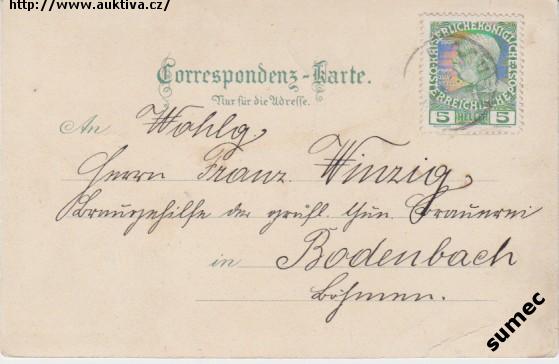 http://www.auktiva.cz/
KAISERLICHE KÖNIGLICHE ÖSTERREICHISCHE
5 HELLER 5
Correspondenz-Karte.
Nur für die Adresse.
An Wohlg
Herrn Franz Winzig
Braugehilfe der gräfl. Thun. Brauerei
in Bodenbach
Böhmen.
sumec